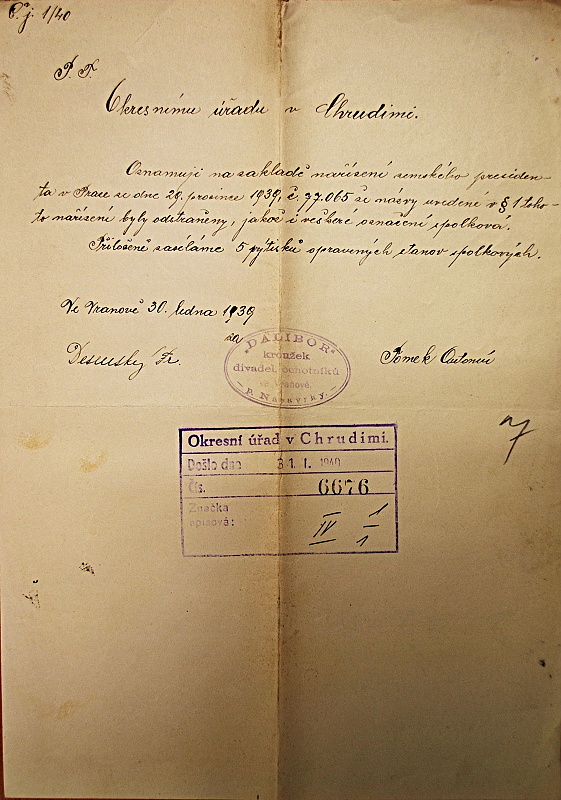 Č. j. 1/40
P. T.
Okresnímu úřadu v Chrudimi.
Oznamuji na zakladě nařízení zemského presiden-
ta v Praze ze dne 29. prosince 1939, č. 77.065 že názvy uvedené v § 1 toho-
to nařízení byly odstraněny, jakož i veškeré označení spolková.
Přiloženě zasíláme 5 výtisků opravených stanov spolkových.
Ve Vranově 30. ledna 1939
za
"DALIBOR"
kroužek
divadel. ochotníků
ve Vranově,
p. Nasavrky.
Fr.
Tomek Antonín
Okresní úřad v Chrudimi.
Došlo dne 31. I. 1940
Čís. 6676
Značka
spisová:
IV 1
1